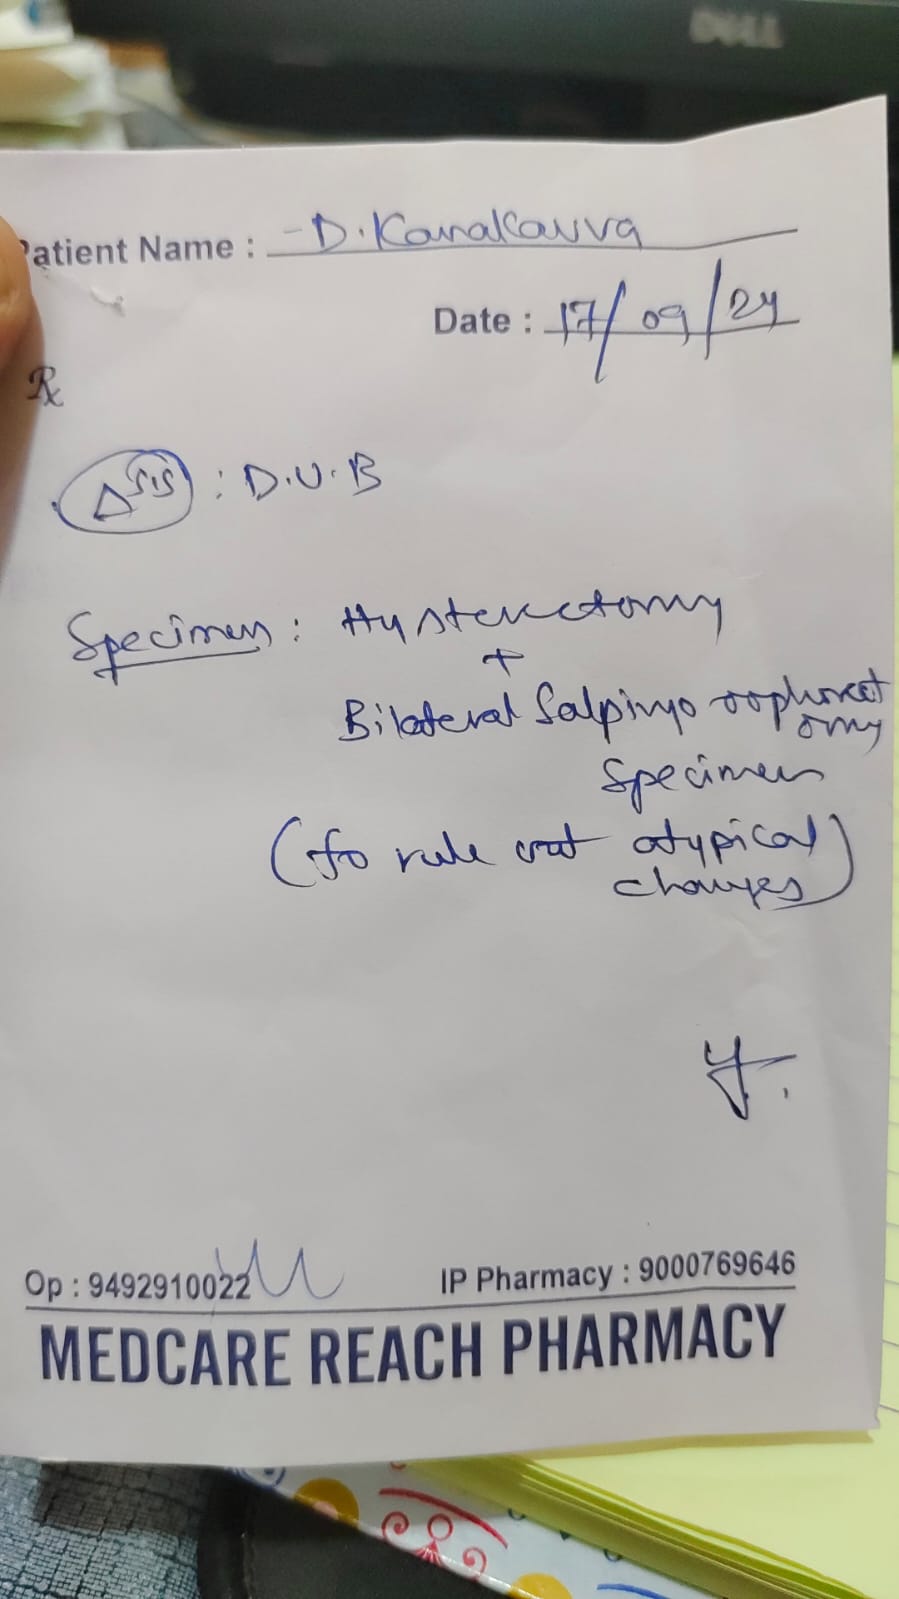 DELL
Patient Name : D. Kanakavva
Date : 17/09/24
Rx
Δsis : D.U.B
Specimen : Hysterectomy
+
Bilateral Salpingo oophorect
omy
Specimen
(to rule out atypical
changes)
Op : 9492910022 IP Pharmacy : 9000769646
MEDCARE REACH PHARMACY